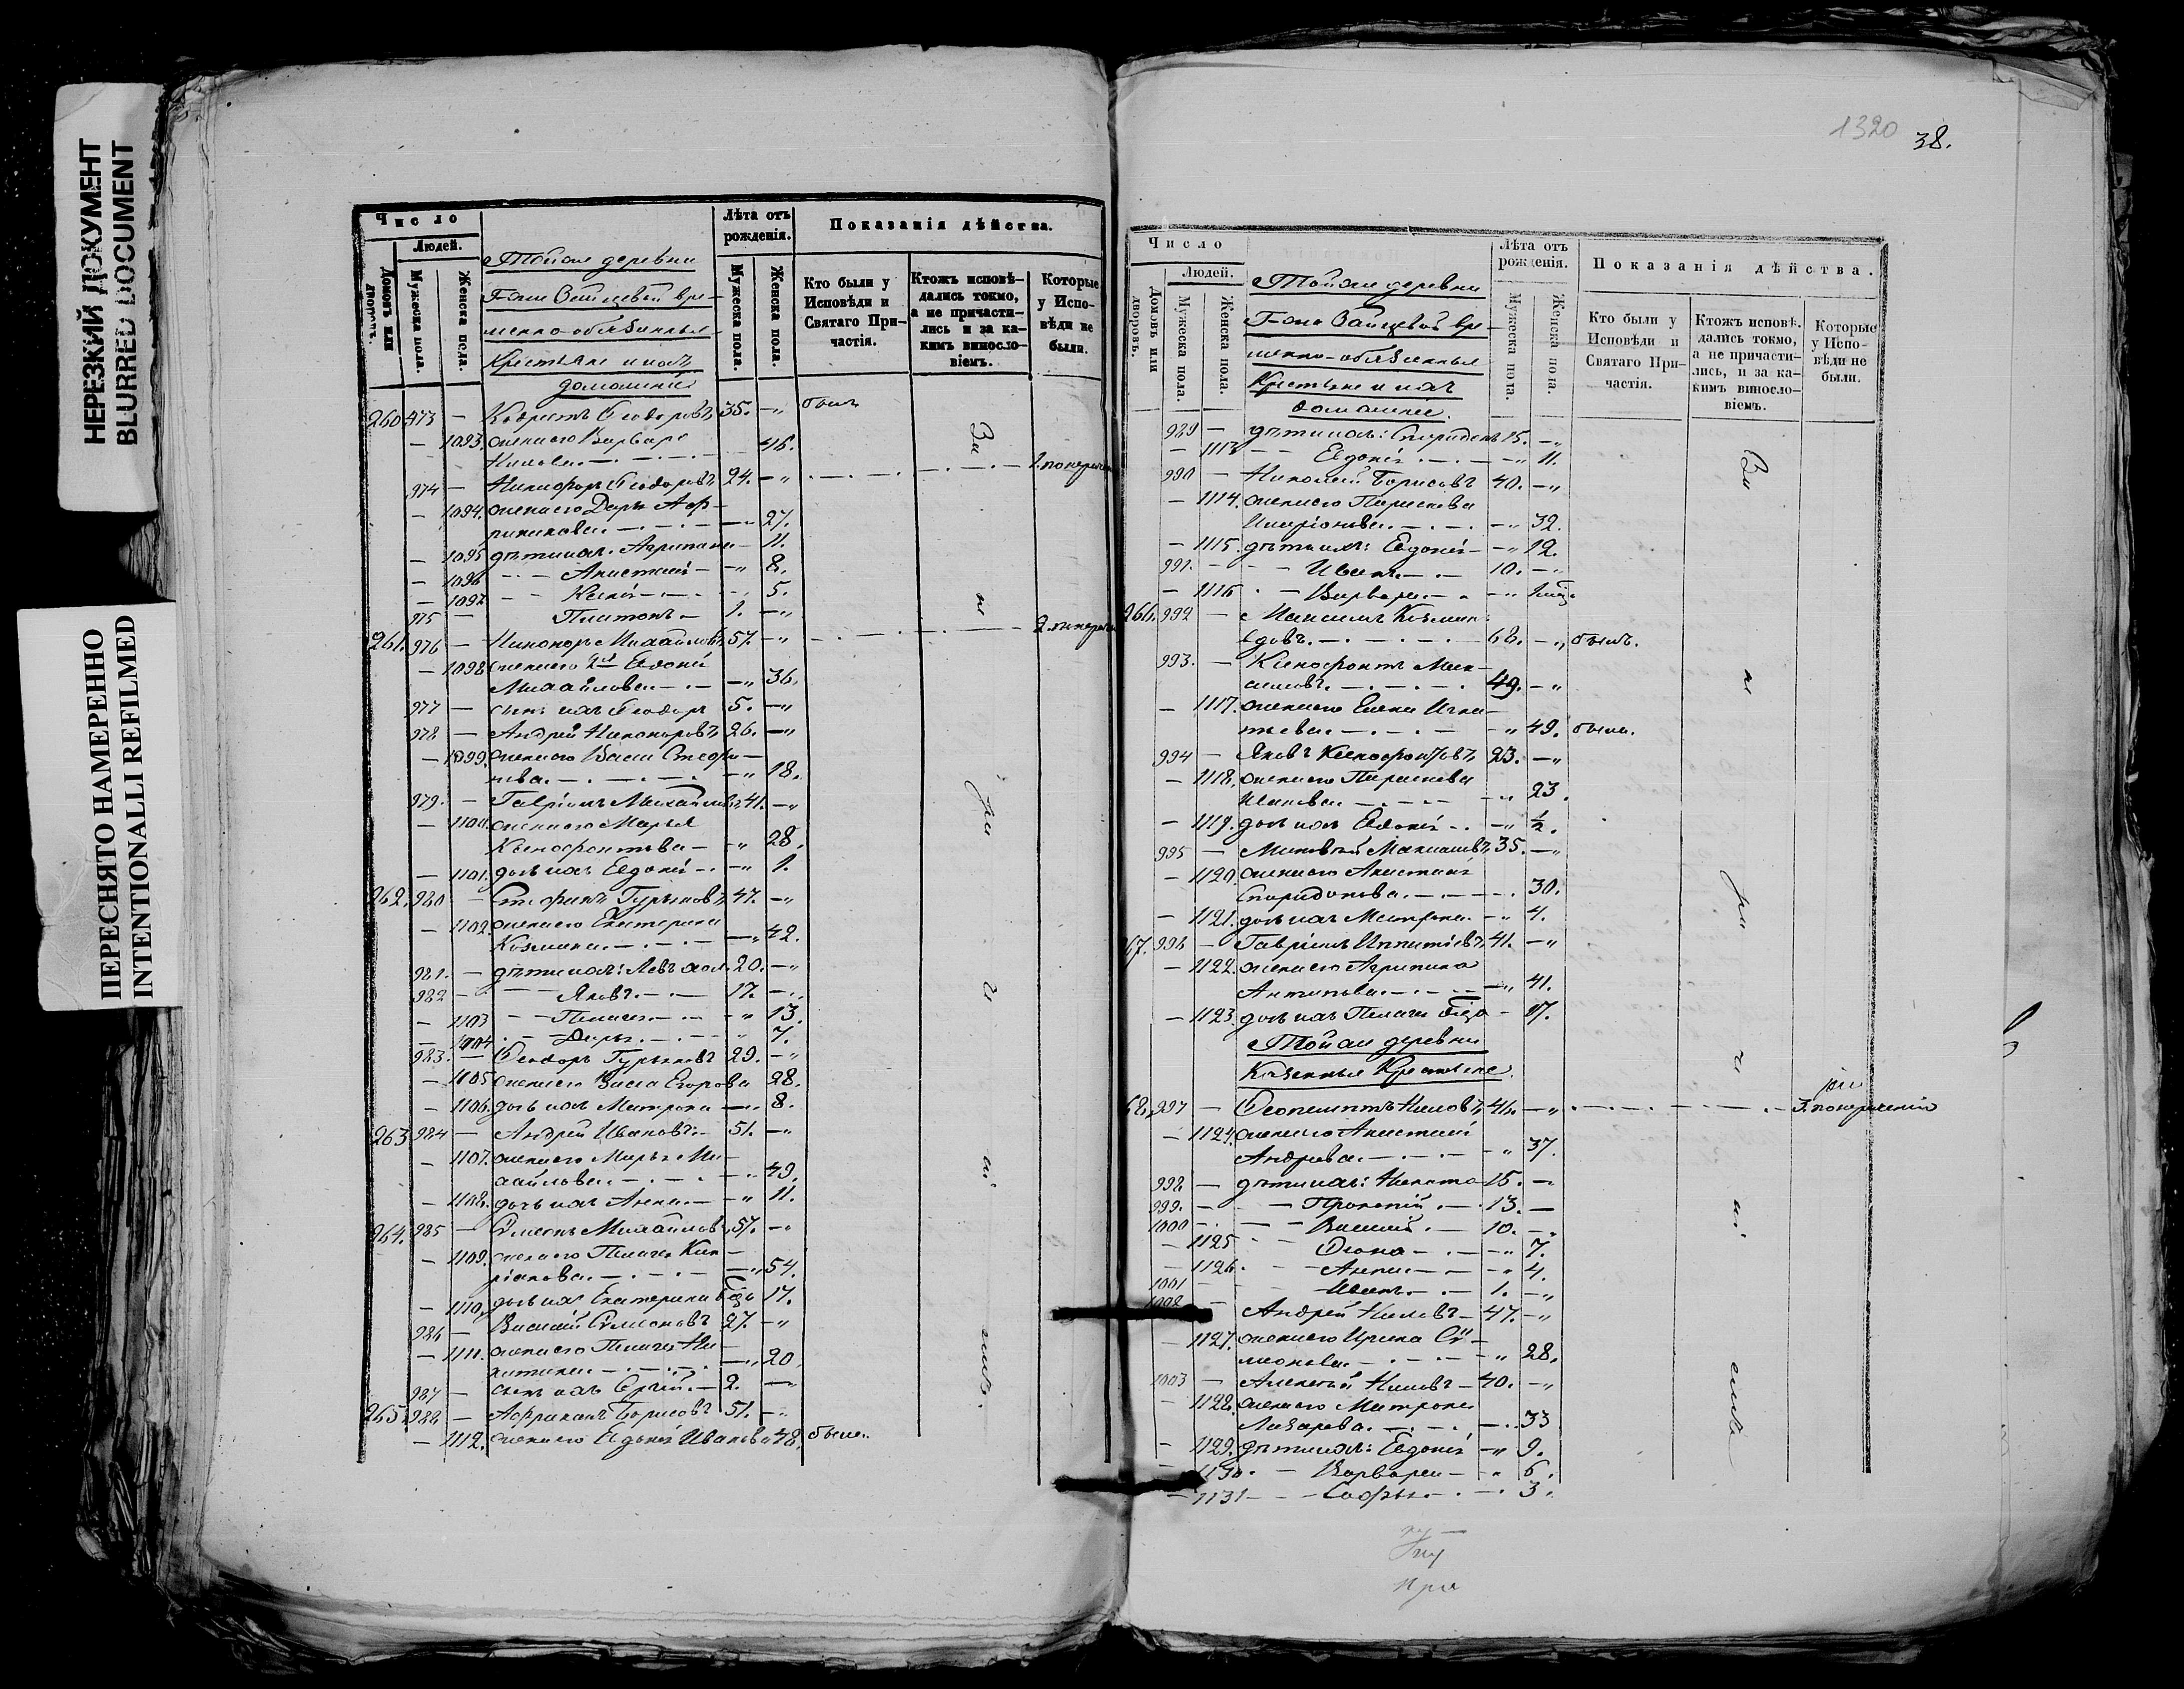 НЕРЕЗКИЙ ДОКУМЕНТ
BLURRED DOCUMENT
ПЕРЕСНЯТО НАМЕРЕННО
INTENTIONALLI REFILMED
Число
Людей.
Домовъ или дворовъ.
Мужеска пола.
Женска пола.
Тойже деревни
Г-жи Зайцевой вре-
менно-обязанные
Крестьяне и ихъ
домашніе
Лѣта отъ рожденія.
Мужеска пола.
Женска пола.
Показанія дѣйства.
Кто были у Исповѣди и Святаго При-частія.
Ктожъ исповѣ-дались токмо, а не причасти-лись и за ка-кимъ винословіемъ.
Которые у Испо-вѣди не были.
260 973 — Кодратъ Ѳеодоровъ 35. — былъ
— 1093. жена его Варвара
Нилова — 46.
974 — Никифоръ Ѳеодоровъ 24. —
— 1094. жена его Дарья Анд-
— 27.
— 1095 дѣти ихъ: Агрипина — 11.
— 1096 Анастасія — 8.
— 1097 Ксенія — 5.
975 — Платонъ — 1. —
261. 976 — Никаноръ Михайловъ 57. —
— 1098 жена его 2я Евдокія
Михайлова — 36.
977 — сынъ ихъ Ѳеодоръ 5. —
978 — Андрей Никаноровъ 26. —
— 1099. жена его Васса Стефа-
нова — 18.
979. — Гавріилъ Михайловъ 41. —
— 1100. жена его Марья
Ксенофонтова — 28.
— 1101. дочь ихъ Евдокія — 1.
262. 980 — Стефанъ Гурьяновъ 47. —
— 1102. жена его Екатерина
Козмина — 42.
981. — дѣти ихъ: Левъ хол. 20. —
982 — Яковъ — 17. —
— 1103 Пелагея — 13.
— 1104 Дарья — 7.
983. — Ѳеодоръ Гурьяновъ 29. —
— 1105 жена его Васса Егорова 28.
— 1106. дочь ихъ Матрона — 8.
263 984 — Андрей Ивановъ — 51. —
— 1107. жена его Марья Ми-
хайлова — 49.
— 1108. дочь ихъ Анна — 11.
264. 985 — Симеонъ Михайловъ 57. —
— 1109. жена его Пелагея Кип-
ріянова — 54.
— 1110. дочь ихъ Екатерина 17.
986 — Василій Симеоновъ 27. —
— 1111. жена его Пелагея Ни-
китина — 20
987 — сынъ ихъ Сергій — 2. —
265. 988 — Африканъ Борисовъ 51. —
— 1112. жена его Евдокія Иванова 48. была.
1320 38.
Число
Людей.
Домовъ или дворовъ.
Мужеска пола.
Женска пола.
Тойже деревни
Г-жи Зайцевой вре-
менно-обязанные
Крестьяне и ихъ
домашніе.
Лѣта отъ рожденія.
Мужеска пола.
Женска пола.
Показанія дѣйства.
Кто были у Исповѣди и Святаго При-частія.
Ктожъ исповѣ-дались токмо, а не причасти-лись, и за ка-кимъ винословіемъ.
Которые у Испо-вѣди не были.
989 — дѣти ихъ: Спиридонъ 15. —
— 1113 Евдокія — 11.
990 — Николай Борисовъ 40. —
— 1114. жена его Параскева
Иларіонова — 32.
— 1115. дѣти ихъ: Евдокія — 12.
991. — Иванъ — 10. —
— 1116 Варвара —
266. 992 — Максимъ Козминъ
вдовъ — 68. — былъ.
993. — Ксенофонтъ Мак-
симовъ — 49. —
— 1117. жена его Елена Игна-
тьева — 49. была.
994 — Яковъ Ксенофонтовъ 23. —
— 1118. жена его Параскева
Иванова — 23.
— 1119. дочь ихъ Евдокія — ½.
995 — Матвѣй Максимовъ 35. —
— 1120. жена его Анастасія
Спиридонова — 30.
— 1121. дочь ихъ Матрона — 4.
67. 996 — Гавріилъ Игнатіевъ 41. —
— 1122. жена его Агрипина
Антипова — 41.
— 1123. дочь ихъ Пелагея — 17.
Тойже деревни
Казенные Крестьяне.
68. 997 — Ѳеопемптъ Ниловъ 46. —
— 1124. жена его Анастасія
Андреева — 37.
998 — дѣти ихъ: Никита 15. —
999. — Прокопій — 13. —
1000 — Василій — 10. —
— 1125 Ѳекла — 7.
— 1126. Анна — 4.
1001 — Иванъ — 1. —
1002 — Андрей Ниловъ — 47. —
— 1127. жена его Ирина Си-
меонова — 28.
1003 — Алексѣй Ниловъ — 40. —
— 1128. жена его Матрона
Лазарева — 33
— 1129. дѣти ихъ: Евдокія — 9.
— 1130. Варвара — 6.
— 1131 Софья — 3.